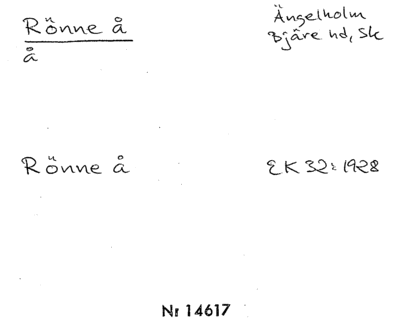 Rönne å
å
Ängelholm
Bjäre hd, Sk
Rönne å
EK 32: 1928
Nr 14617